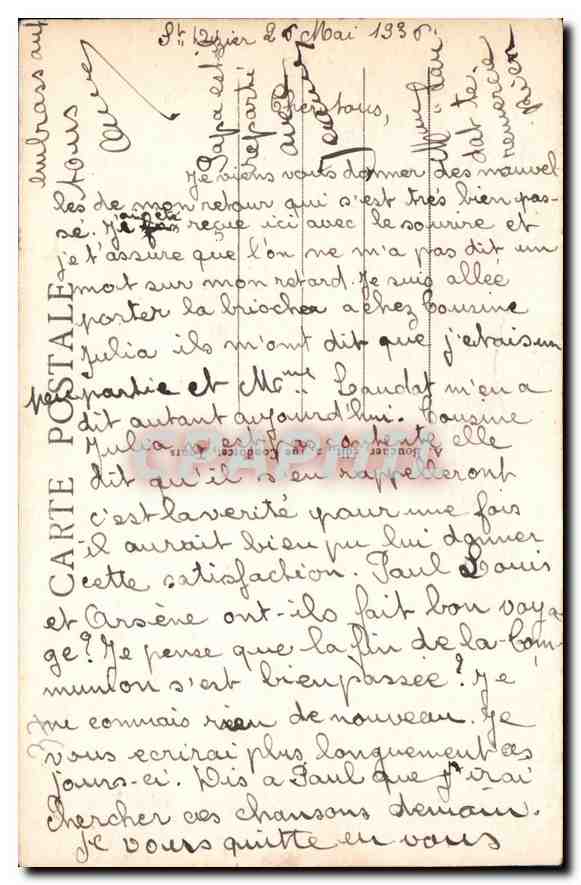 St Dizier 26 Mai 1936.
Chers tous,
Je viens vous donner des nouvel-
les de mon retour qui s'est très bien pas-
sé. J'ai été reçue ici avec le sourire et
je t'assure que l'on ne m'a pas dit un
mot sur mon retard. Je suis allée
porter la brioche a chez Cousine
Julia ils m'ont dit que j'etais un
peu partie et Mme Laudat m'en a
dit autant aujourd'hui. Cousine
Julia n'est pas contente elle
dit qu'il s'en rappelleront
c'est la verité pour une fois
il aurait bien pu lui donner
cette satisfaction. Paul Louis
et Arsène ont-ils fait bon voya
ge? Je pense que la fin de la Com-
munion s'est bien passée? Je
ne connais rien de nouveau. Je
vous ecrirai plus longuement ces
jours-ci. Dis a Paul que j'irai
chercher ces chansons demain.
Je vous quitte en vous
embrassant
tous
Papa est
reparti
avec
Mme Lau
dat te
remercie
bien
CARTE POSTALE
CPAPHIL